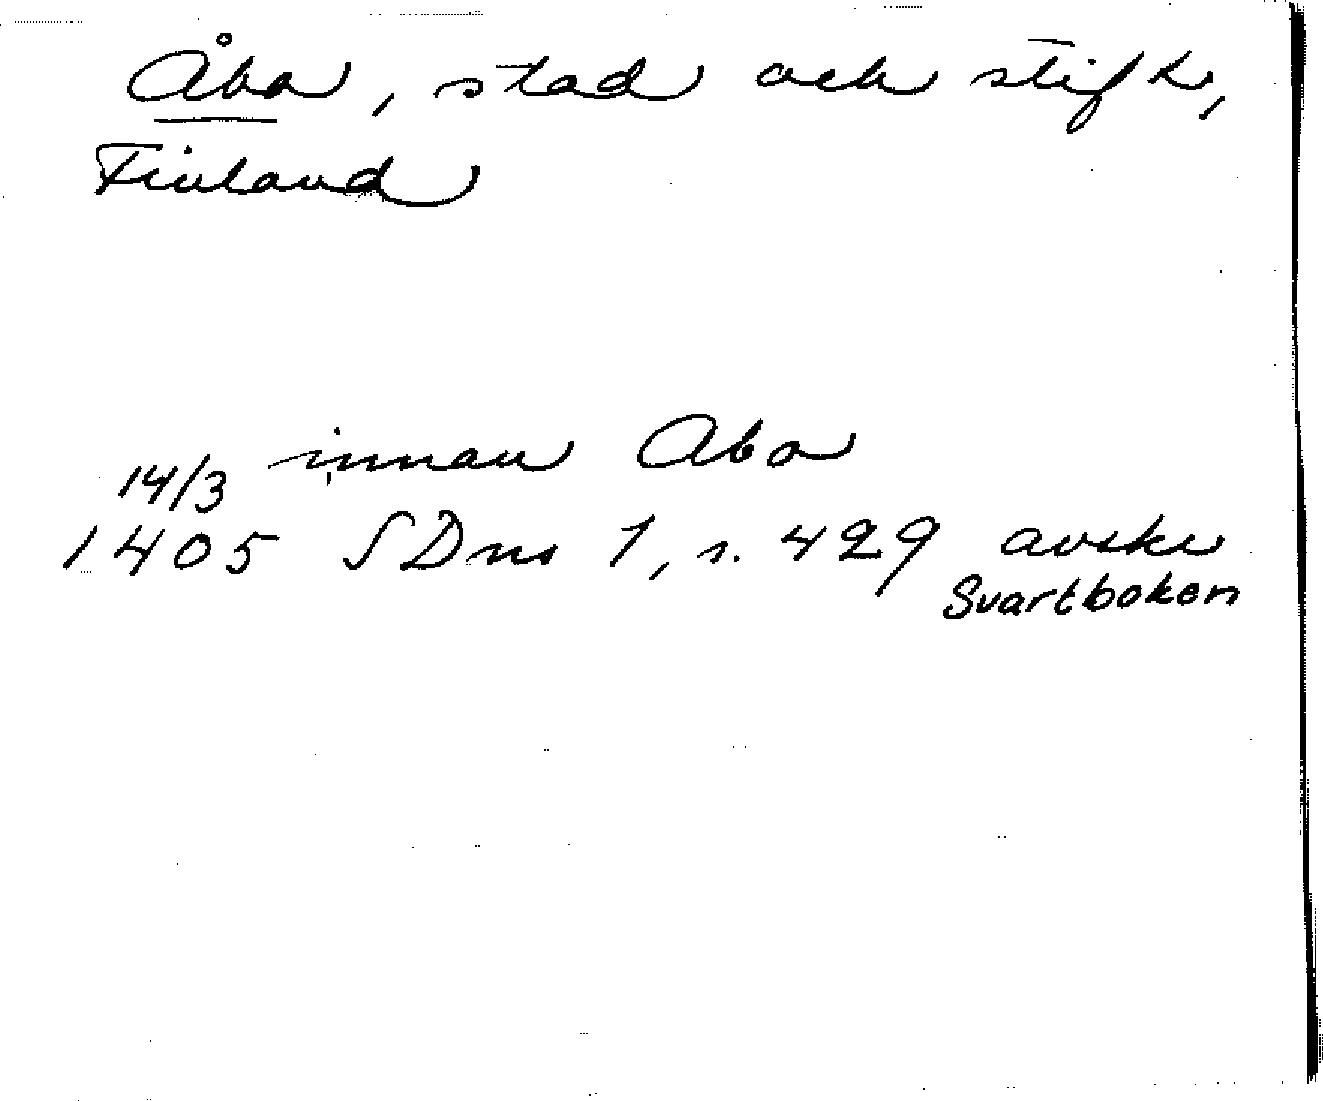 Åbo, stad och stift,
Finland
innan Abo
14/3
1405 SDns 1, s. 429 avskr
Svartboken